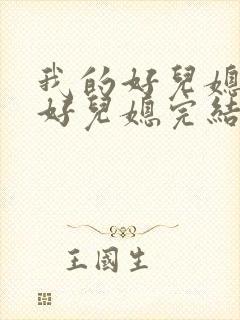 我的好兒媳
好兒媳完結
王國生